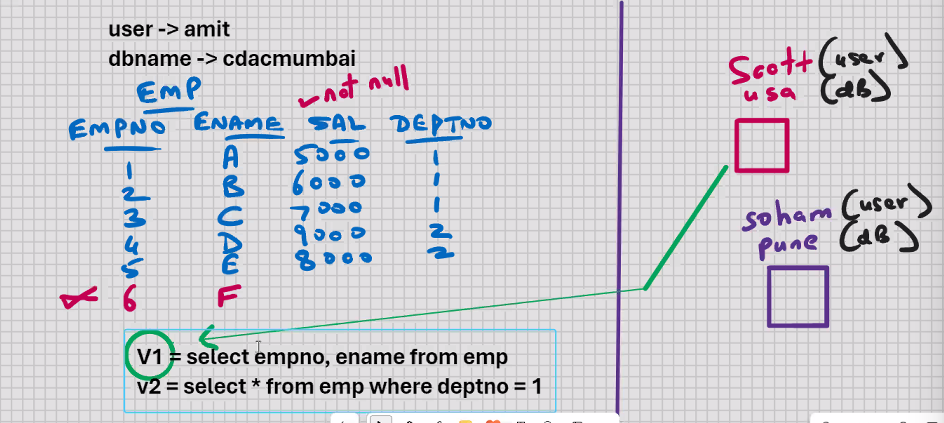 user -> amit
dbname -> cdacmumbai
EMP
not null
EMPNO ENAME SAL DEPTNO
1 A 5000 1
2 B 6000 1
3 C 7000 1
4 D 9000 2
5 E 8000 2
6 F
V1 = select empno, ename from emp
v2 = select * from emp where deptno = 1
Scott (user)
usa (dB)
soham (user)
pune (dB)